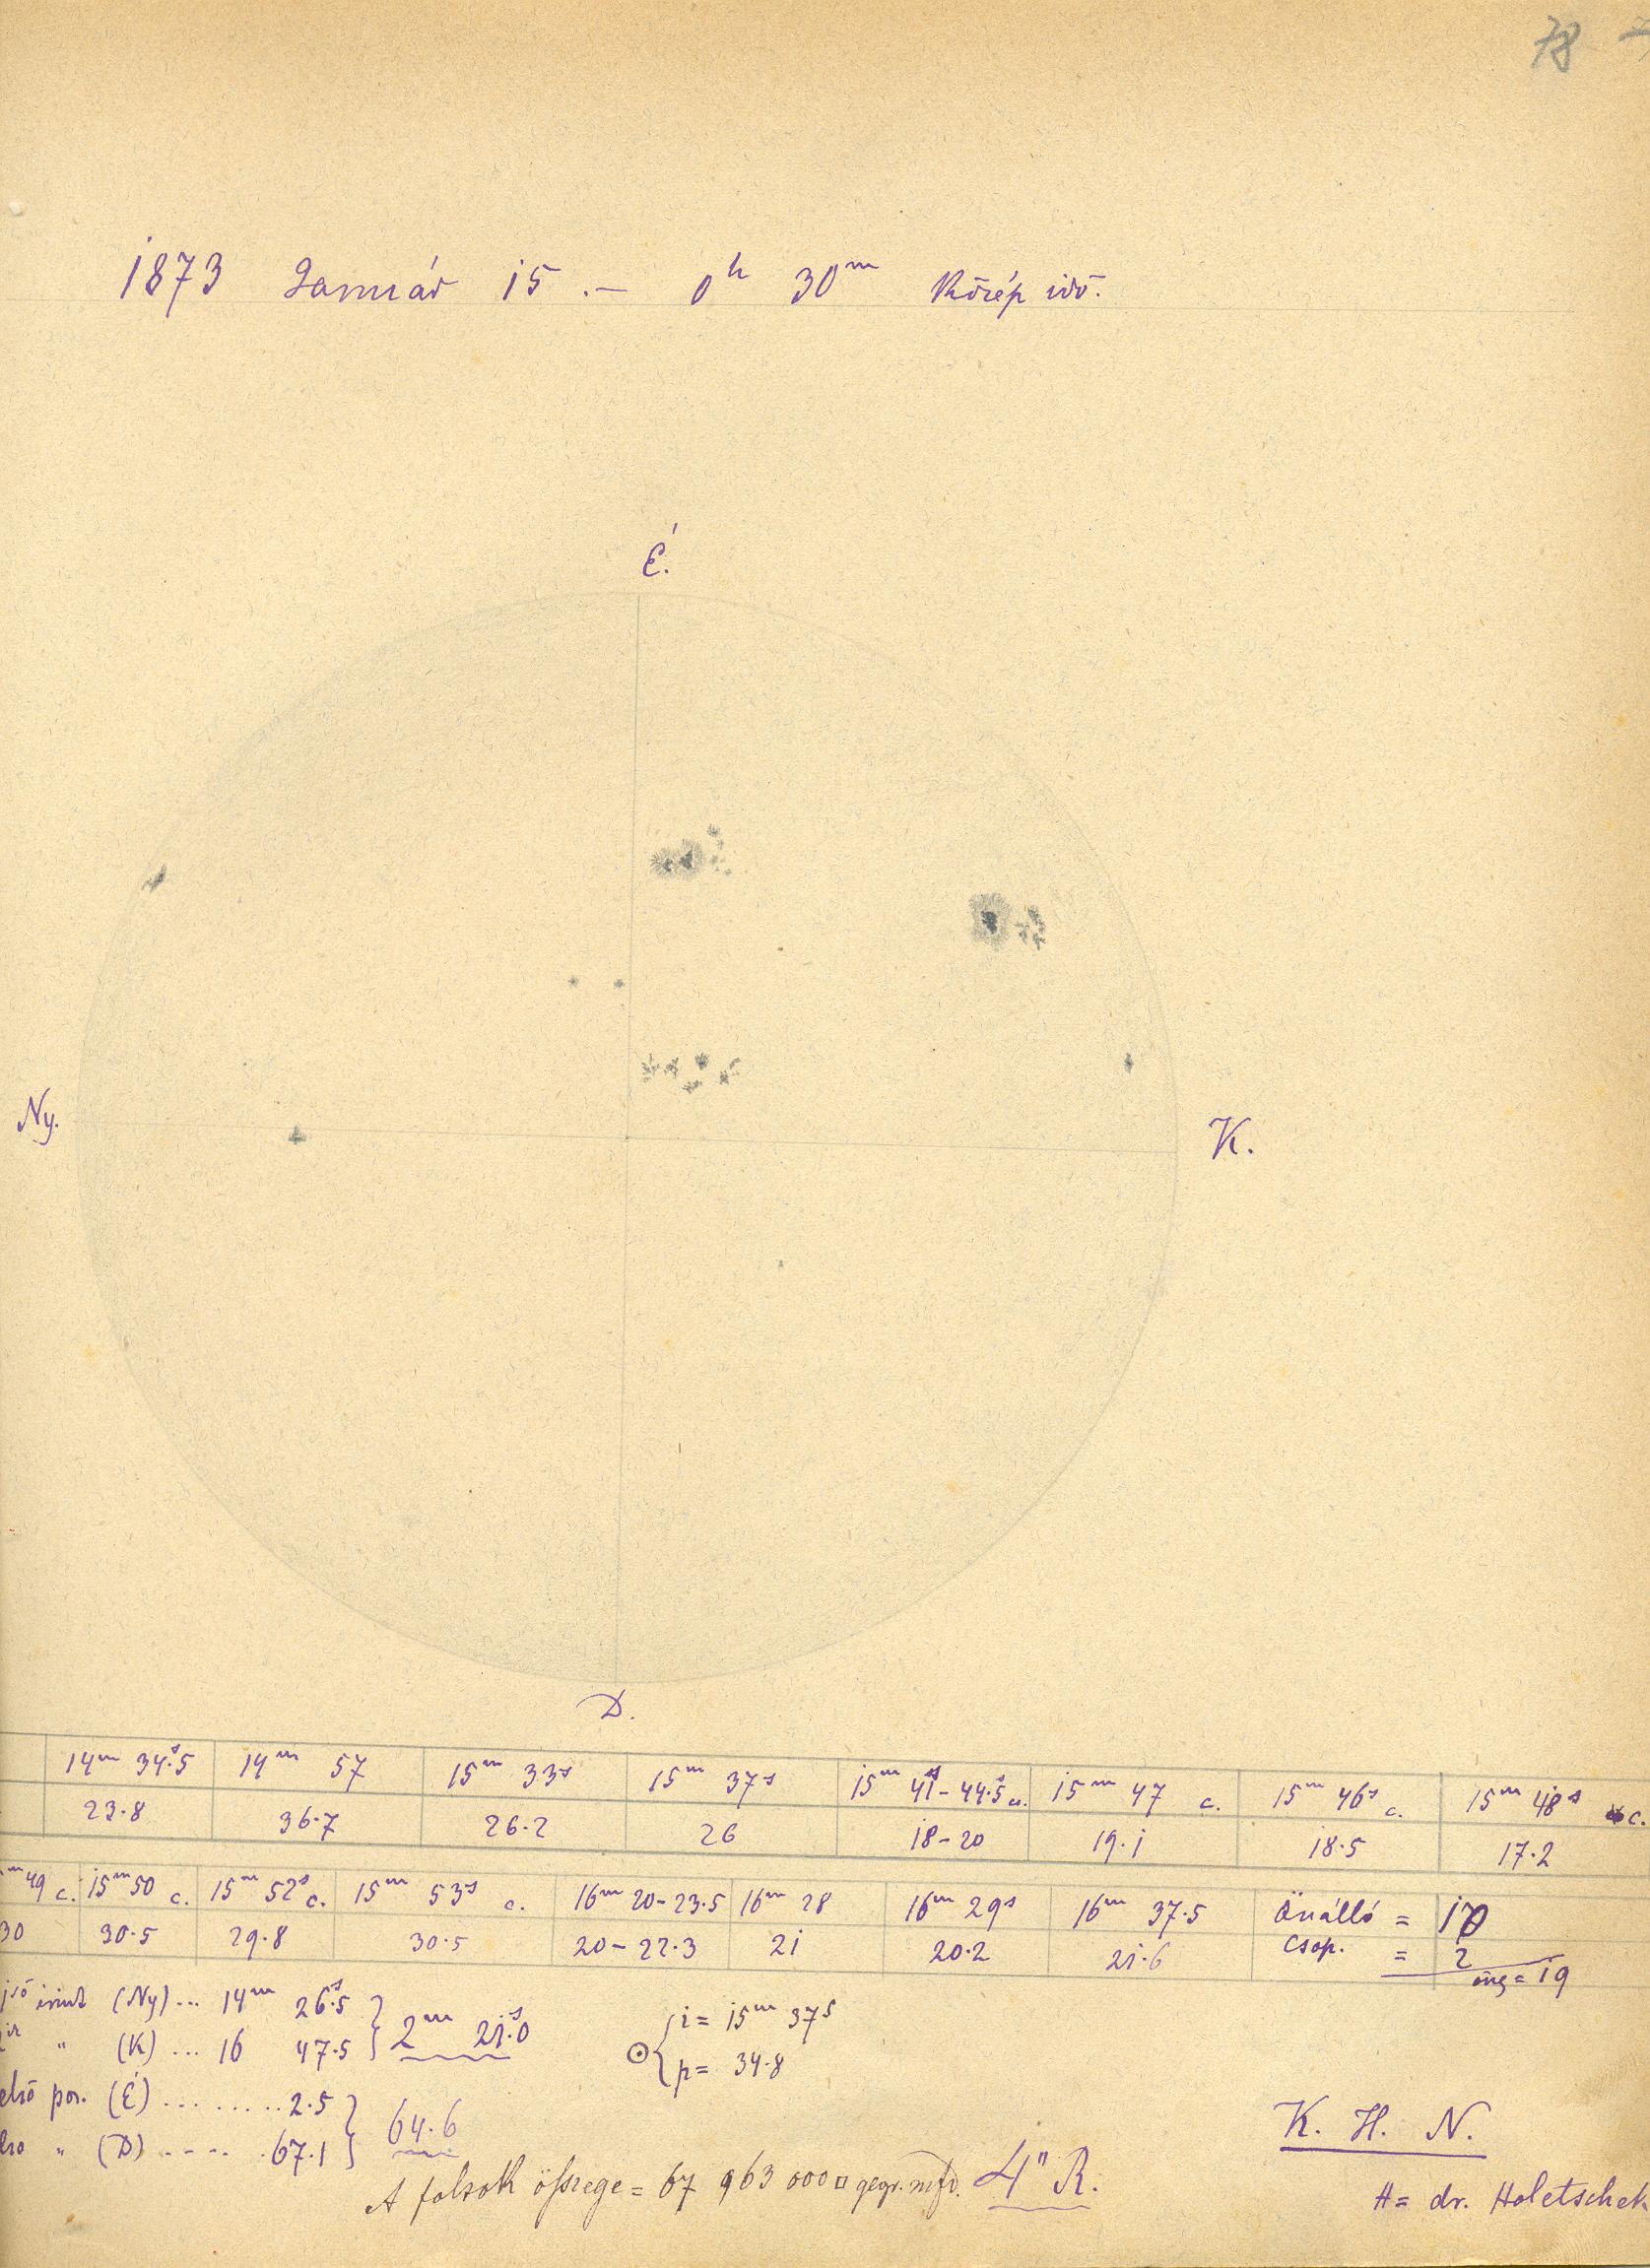 78
1873 Január 15 .— 0h 30m Közép idő.
É.
Ny.
K.
D.
14m 34s.5 14m 57 15m 33s 15m 37s 15m 41-44s.5 c. 15m 47 c. 15m 46s c. 15m 48s c.
23.8 36.7 26.2 26 18-20 19.1 18.5 17.2
m 49 c. 15m 50 c. 15m 52s c. 15m 53s c. 16m 20-23.5 16m 28 16m 29s 16m 37.5 Önálló = 17
30 30.5 29.8 30.5 20-22.3 21 20.2 21.6 Csop. = 2
öszg = 19
(Ny)... 14m 26s.5
" (K) ... 16 47.5
2m 21s.0
első por. (É) ........2.5
" (D) ..... 67.1
64.6
☉ { i = 15m 37s
p = 34.8
A foltok összege = 67 963 000 □ gegr. mfd. 4" R.
K. H. N.
H = dr. Holetschek